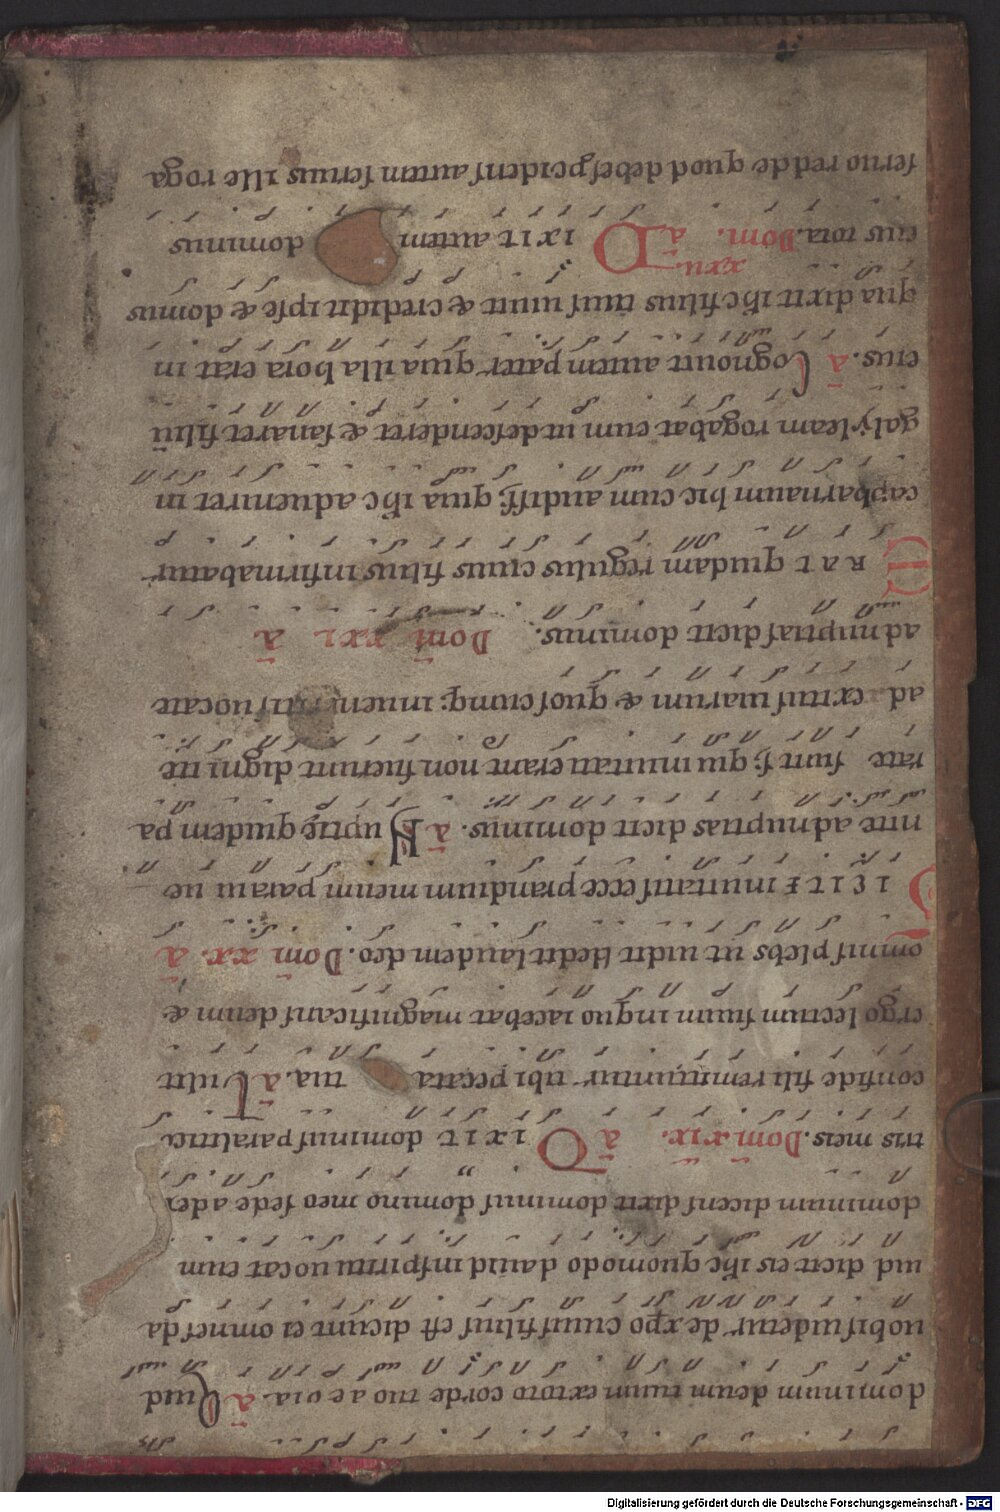 dominum deum tuum extoto corde tuo aeuia. ā Quid
uobis uidetur de xpo cuius filius est dicunt ei omnes da
uid dicit eis ihc quomodo dauid inspiritu uocat eum
dominum dicens dixit dominus domino meo sede adex
tris meis. Dom̄ xix. ā Dixit dominus paralitico
confide fili remittuntur tibi peccata tua. ā Tulit
ergo lectum suum inquo iacebat magnificans deum &
omnis plebs ut uidit dedit laudem deo. Dom̄ xx. ā
Dicite inuitatis ecce prandium meum paraui ue
nite adnuptias dicit dominus. ā Nuptię quidem pa
rate sunt s; qui inuitati erant non fuerunt digni ite
ad exitus uiarum & quoscumq; inueneritis uocate
adnuptias dicit dominus. Dom̄ xxi ā
Erat quidam regulus cuius filius infirmabatur
capharnaum hic cum audiss; quia ihc adueniret in
galyleam rogabat eum ut descenderet & sanaret filiū
eius. ā Cognouit autem pater quia illa hora erat in
qua dixit ihc filius tuus uiuit & credidit ipse & domus
eius tota. Dom̄. xxii. ā Dixit autem dominus
seruo redde quod debes pcidens autem seruus ille roga
Digitalisierung gefördert durch die Deutsche Forschungsgemeinschaft - DFG